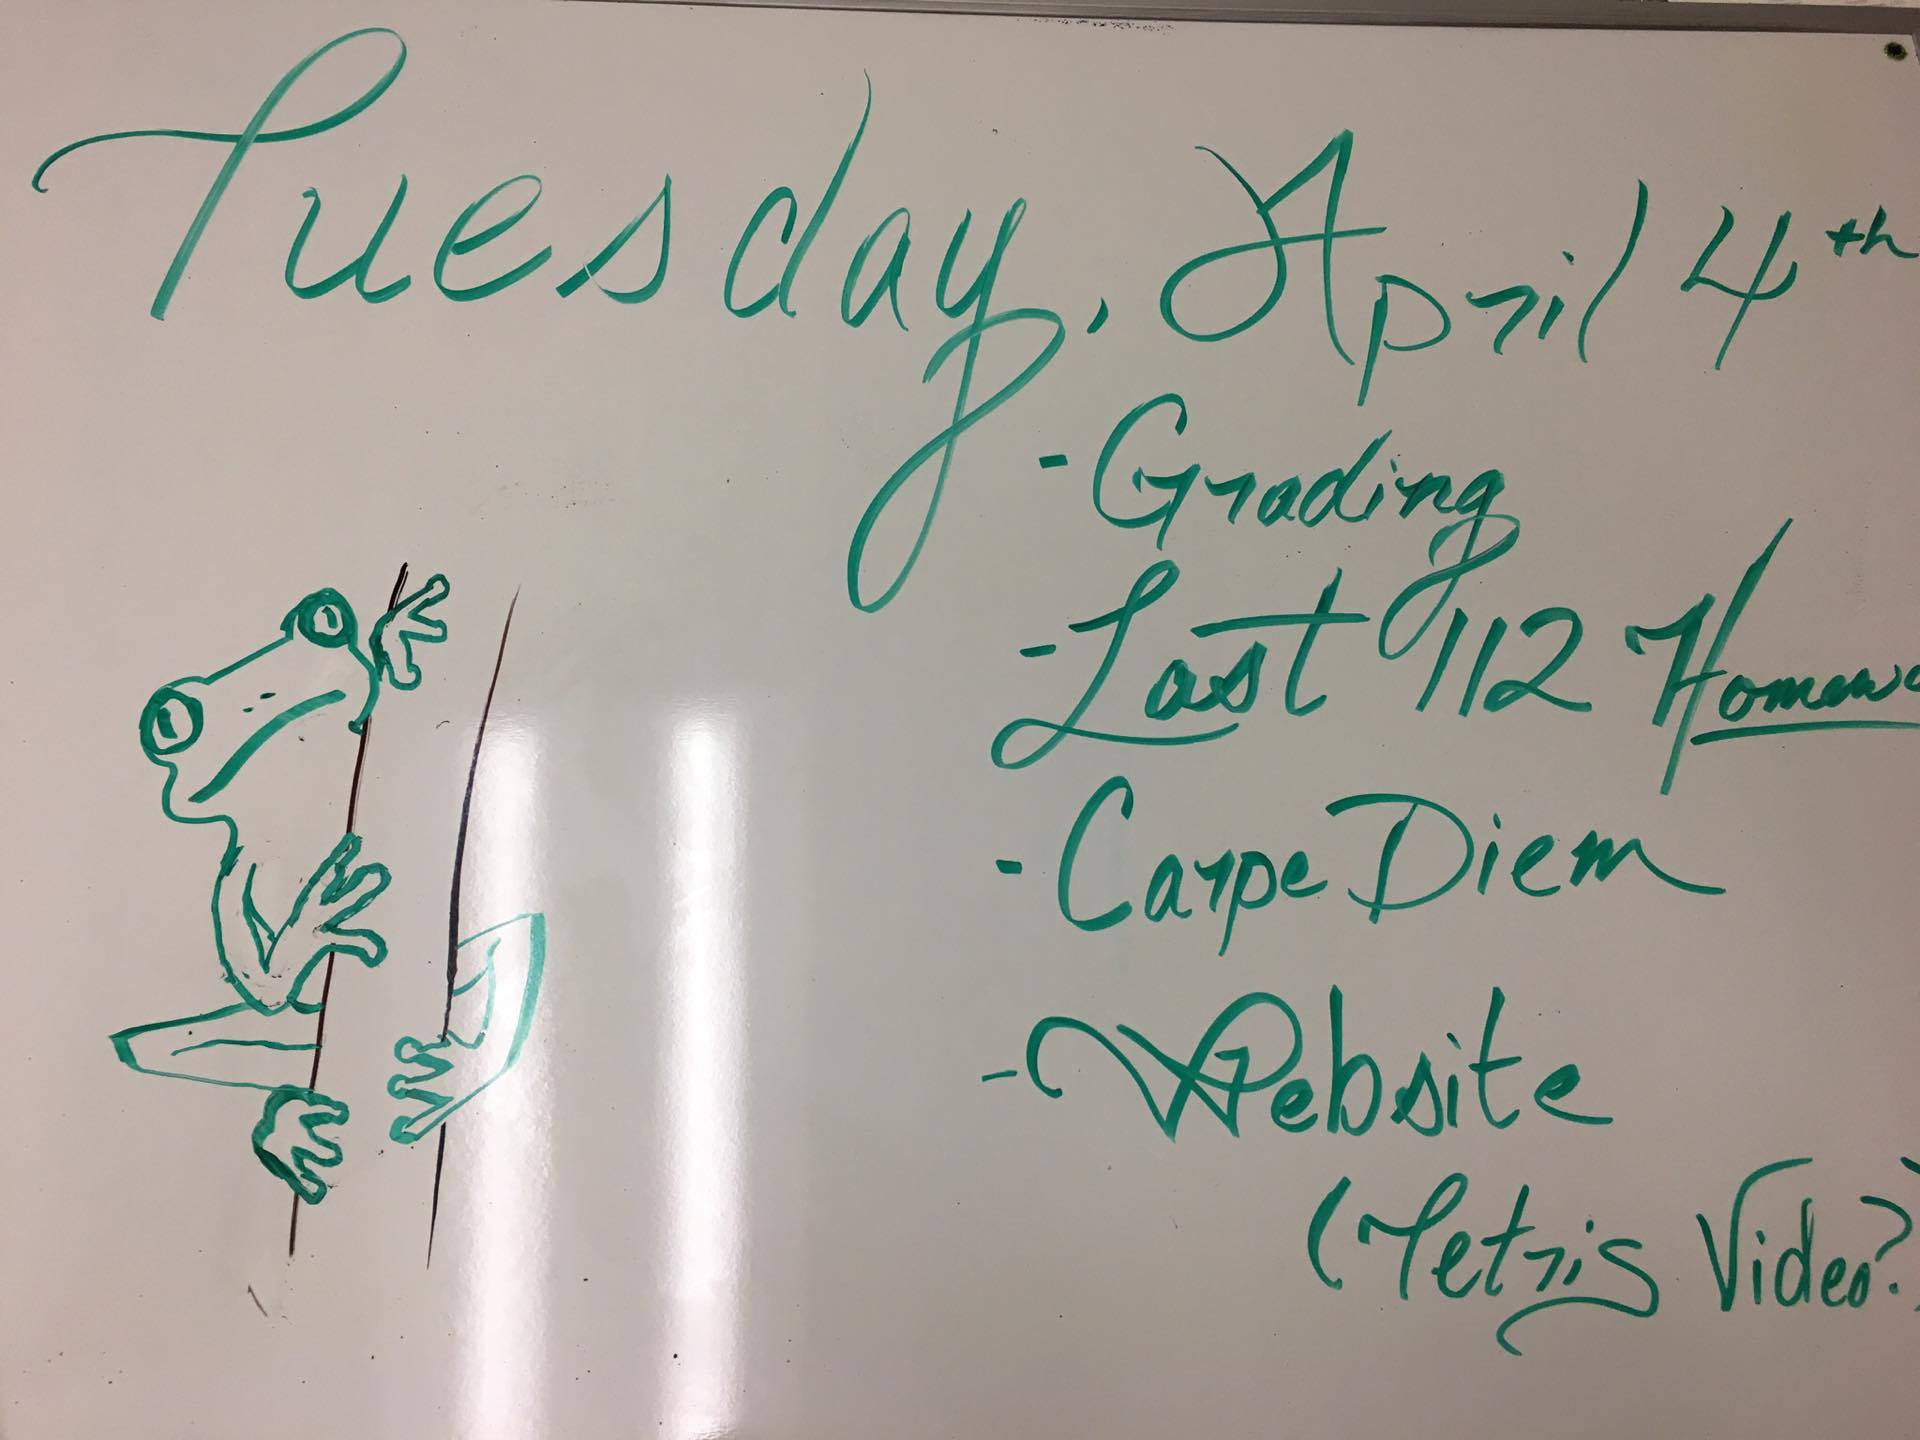 Tuesday, April 4th
- Grading
- Last 112 Homewo
- Carpe Diem
- Website
(Tetris Video?)